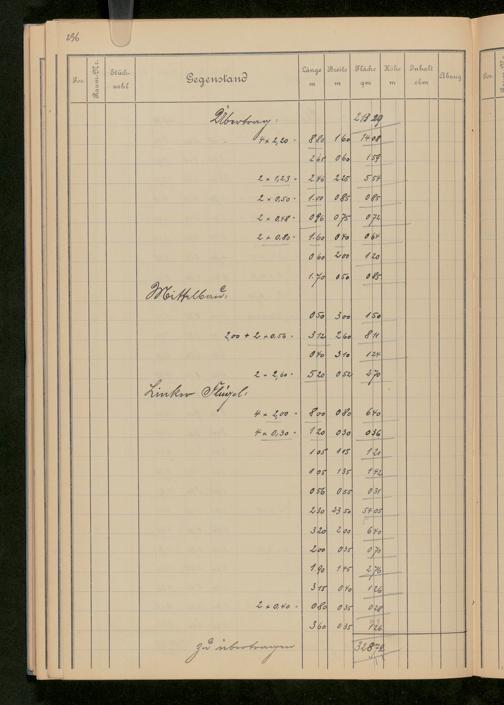 236
Pos. Raum-Nr. Stück-zahl Gegenstand Länge m Breite m Fläche qm Höhe m Inhalt cbm Abzug Pos.
Übertrag: 213 29
4 × 2,20 = 8 80 1 60 14 08
2 65 0 60 1 59
2 × 1,23 = 2 46 2 25 5 54
2 × 0,50 = 1.00 0 85 0 85
2 × 0,48 = 0 96 0 75 0 72
2 × 0,80 = 1.60 0 40 0 64
0 60 2 00 1 20
1.70 0 50 0 85
Mittelbau:
0 50 3 00 1 50
2,00 + 2 × 0,56 = 3 12 2 60 8 11
0 40 3 10 1 24
2 × 2,60 = 5 20 0 52 2 70
Linker Flügel:
4 × 2,00 = 8 00 0 80 6 40
4 × 0,30 = 1 20 0 30 0 36
1 05 1 15 1 21
1 05 1 35 1 42
0 56 0 55 0 31
2 30 23 50 54 05
3 20 2 00 6 40
2 00 0 35 0 70
1.90 1 45 2 76
3 15 0 40 1 26
2 × 0,40 = 0 80 0 35 0 28
3 60 0 35 1 26
zu übertragen 328 74